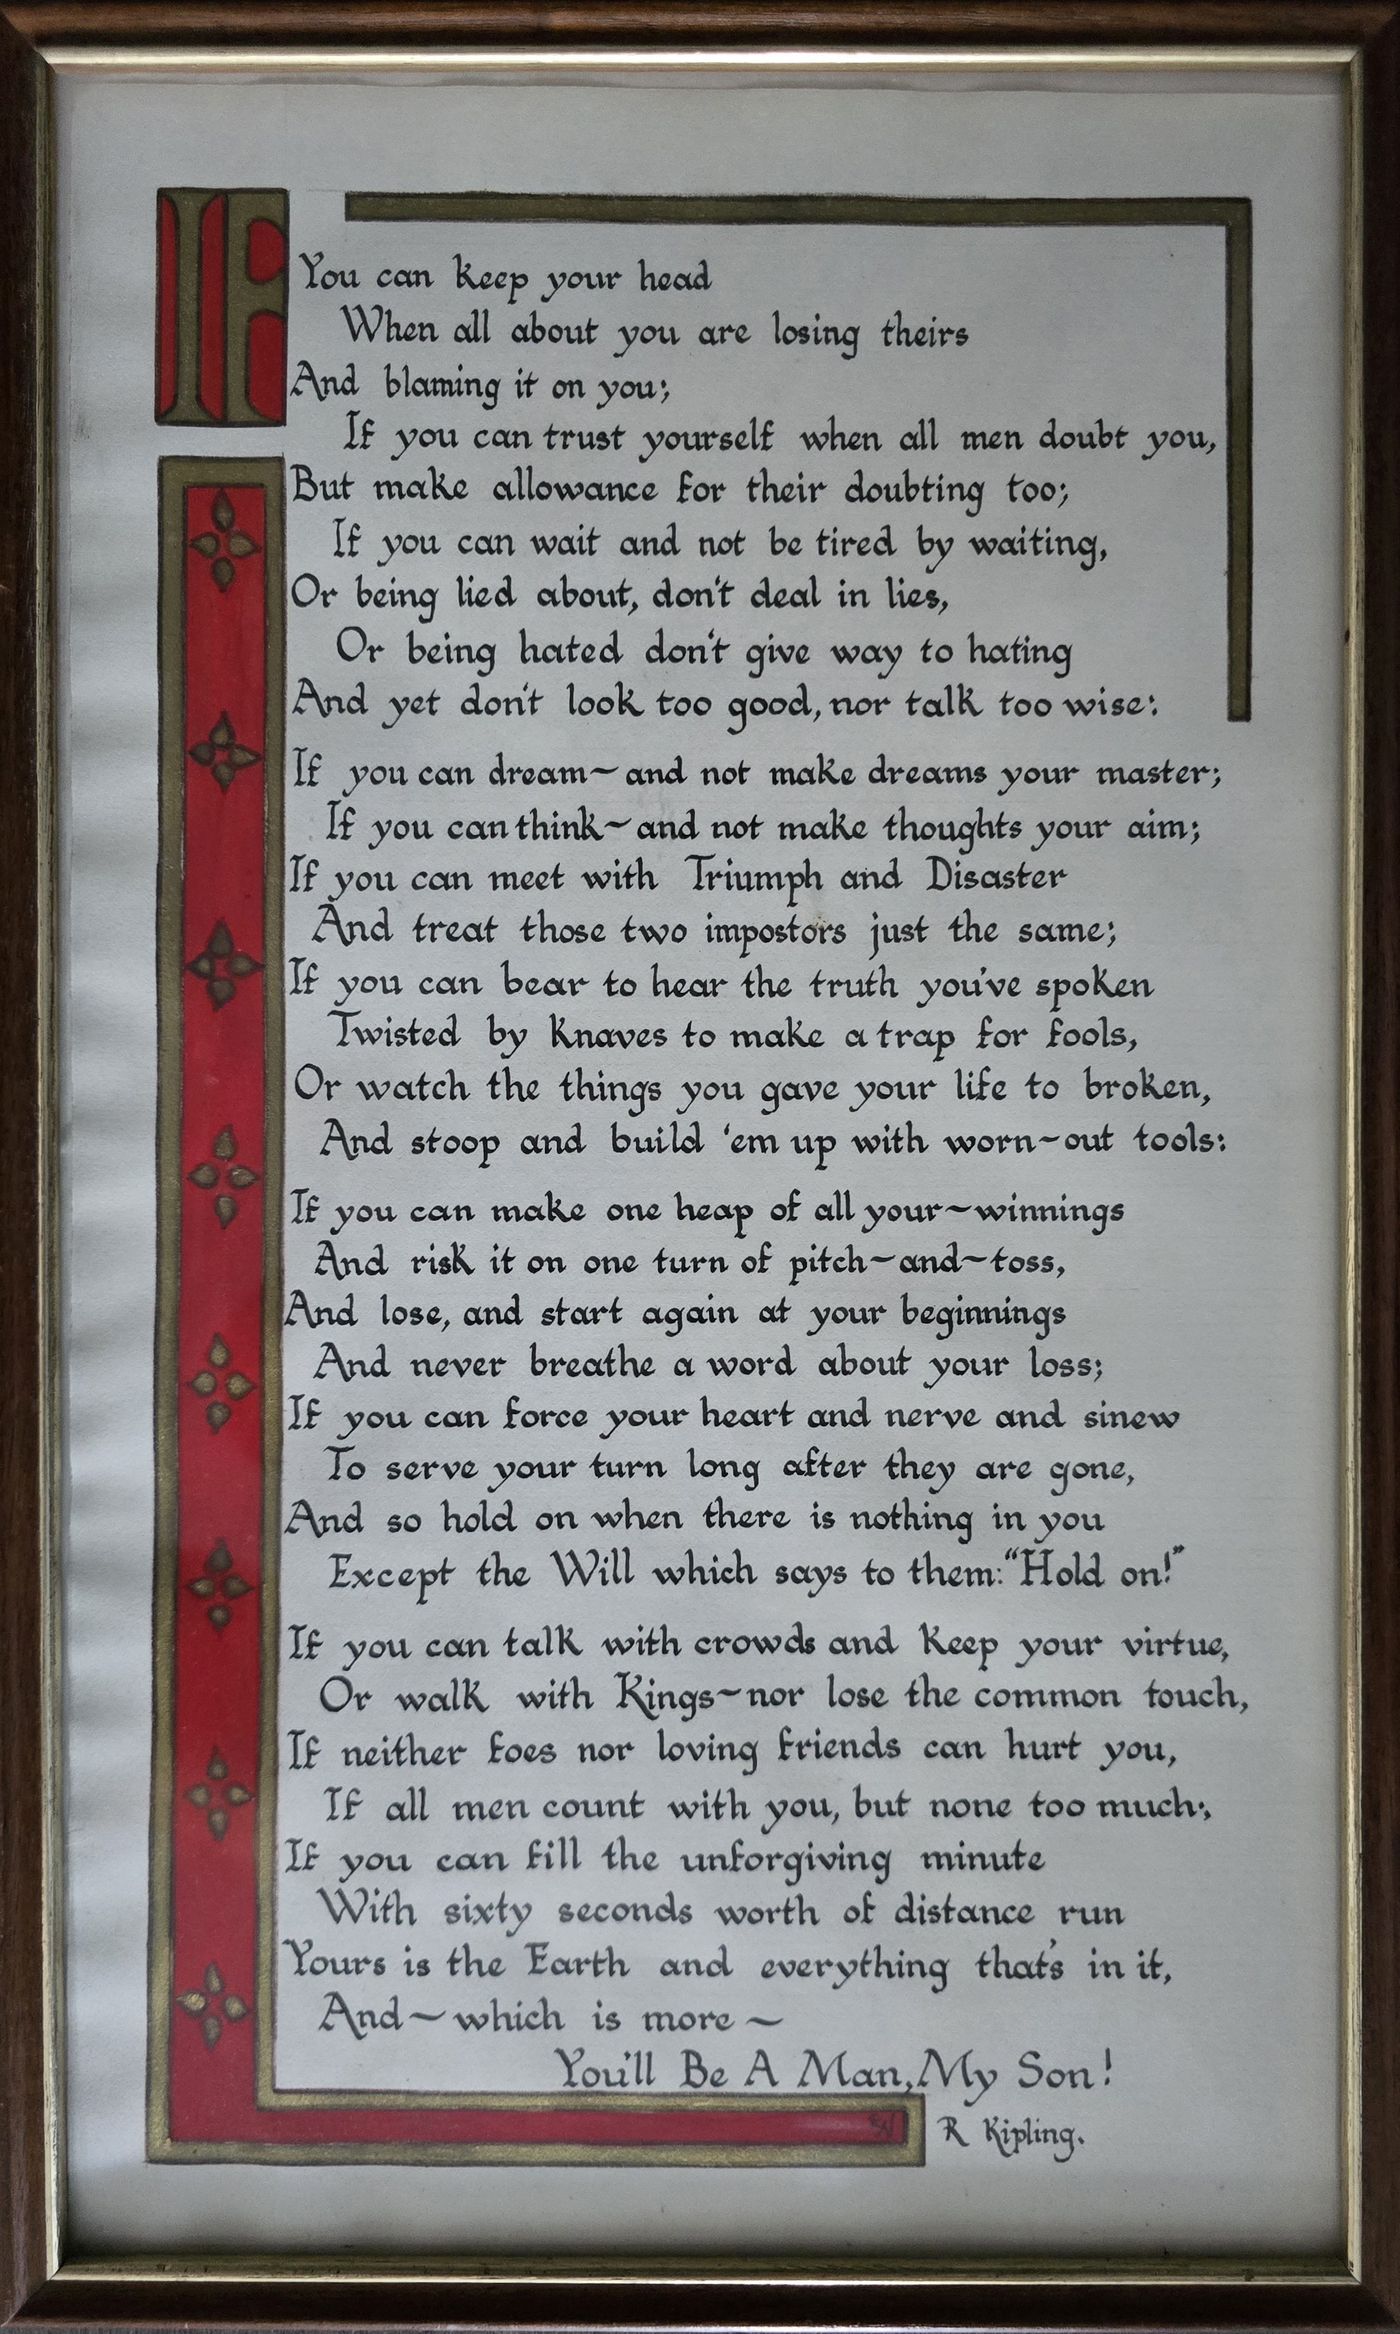 IF
You can keep your head
When all about you are losing theirs
And blaming it on you;
If you can trust yourself when all men doubt you,
But make allowance for their doubting too;
If you can wait and not be tired by waiting,
Or being lied about, don't deal in lies,
Or being hated don't give way to hating
And yet don't look too good, nor talk too wise:
If you can dream~and not make dreams your master;
If you can think~and not make thoughts your aim;
If you can meet with Triumph and Disaster
And treat those two impostors just the same;
If you can bear to hear the truth you've spoken
Twisted by knaves to make a trap for fools,
Or watch the things you gave your life to broken,
And stoop and build 'em up with worn~out tools:
If you can make one heap of all your~winnings
And risk it on one turn of pitch~and~toss,
And lose, and start again at your beginnings
And never breathe a word about your loss;
If you can force your heart and nerve and sinew
To serve your turn long after they are gone,
And so hold on when there is nothing in you
Except the Will which says to them: "Hold on!"
If you can talk with crowds and keep your virtue,
Or walk with Kings~nor lose the common touch,
If neither foes nor loving friends can hurt you,
If all men count with you, but none too much;
If you can fill the unforgiving minute
With sixty seconds worth of distance run
Yours is the Earth and everything that's in it,
And~which is more~
You'll Be A Man, My Son!
R Kipling.